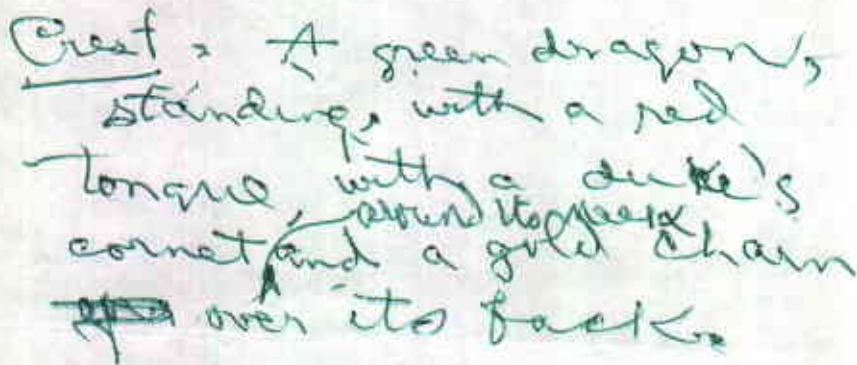 Crest: A green dragon,
standing, with a red
tongue, with a duke's
around its neck
cornet and a gold chain
over its back.